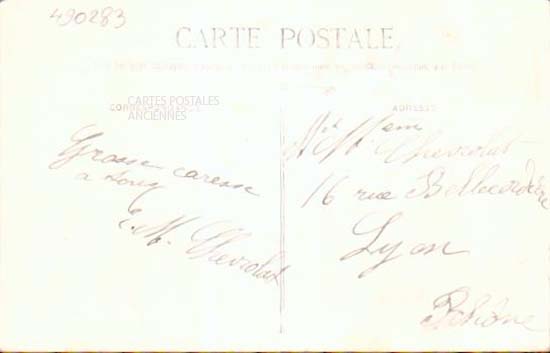 490283
CARTE POSTALE
CORRESPONDANCE
CARTES POSTALES
ANCIENNES
Grosse caresse
a tous
E. M. Chevrolat
ADRESSE
Chevrolat
16 rue Bellecordière
Lyon
Rhône